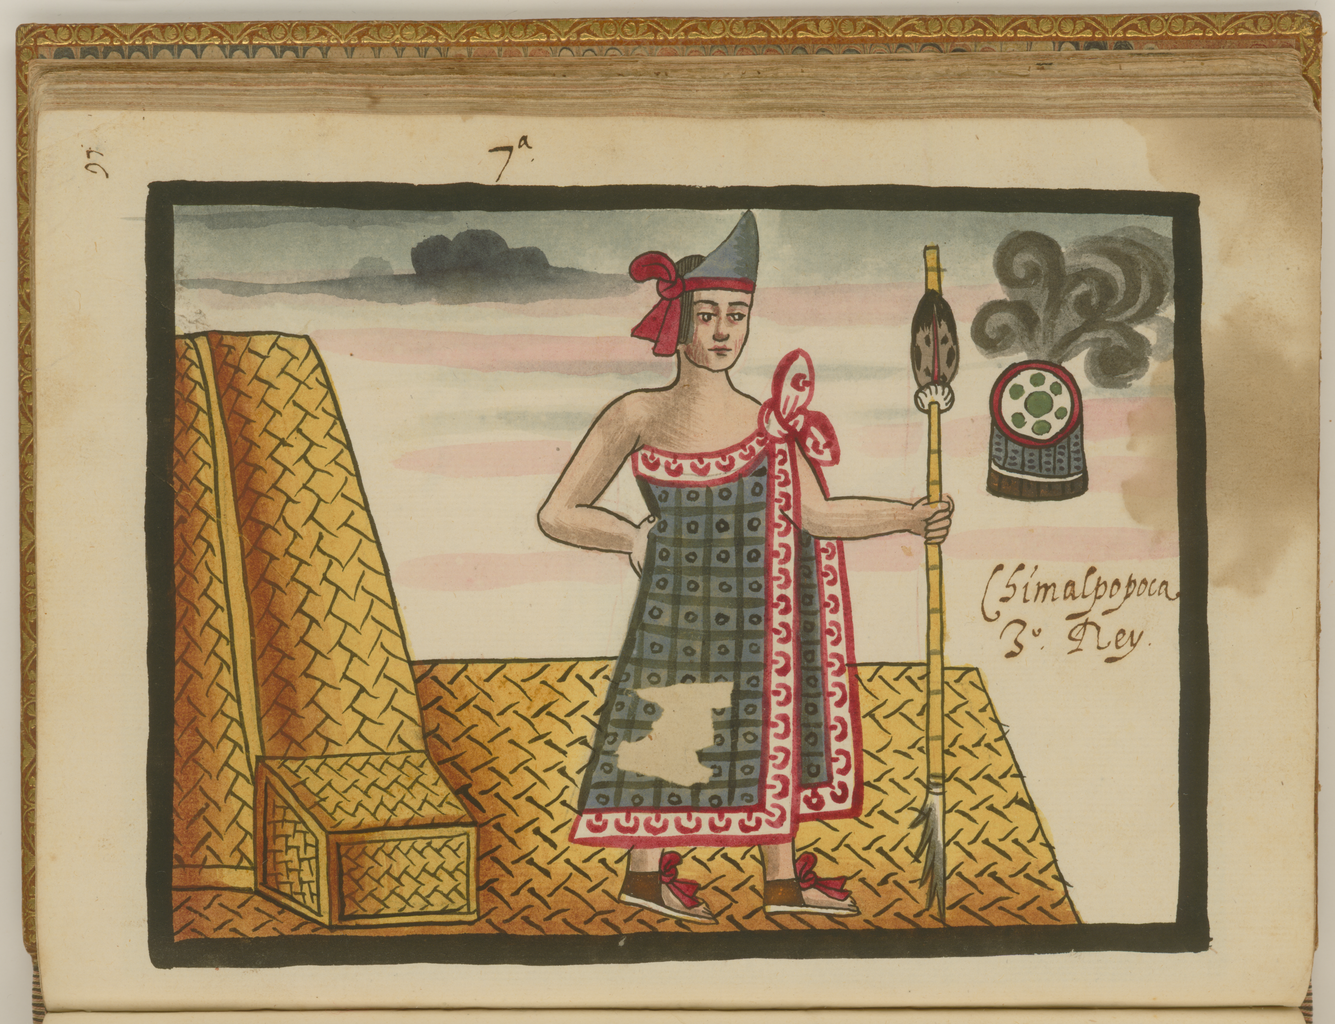 7ª.
Chimalpopoca
3º. Rey.